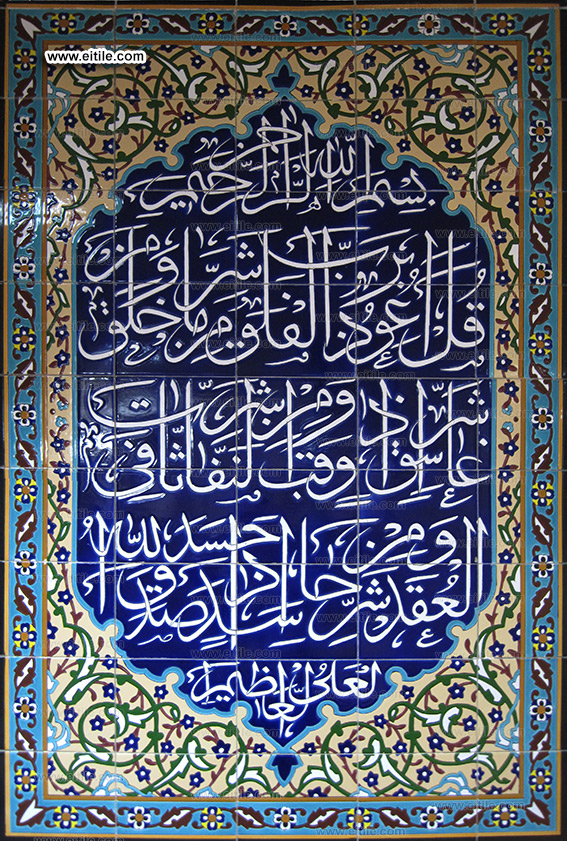 www.eitile.com
بسم الله الرحمن الرحيم
قل أعوذ برب الفلق من شر ما خلق و من
شر غاسق إذا وقب و من شر النفاثات في
العقد و من شر حاسد إذا حسد صدق الله ا
لعلى العظيم